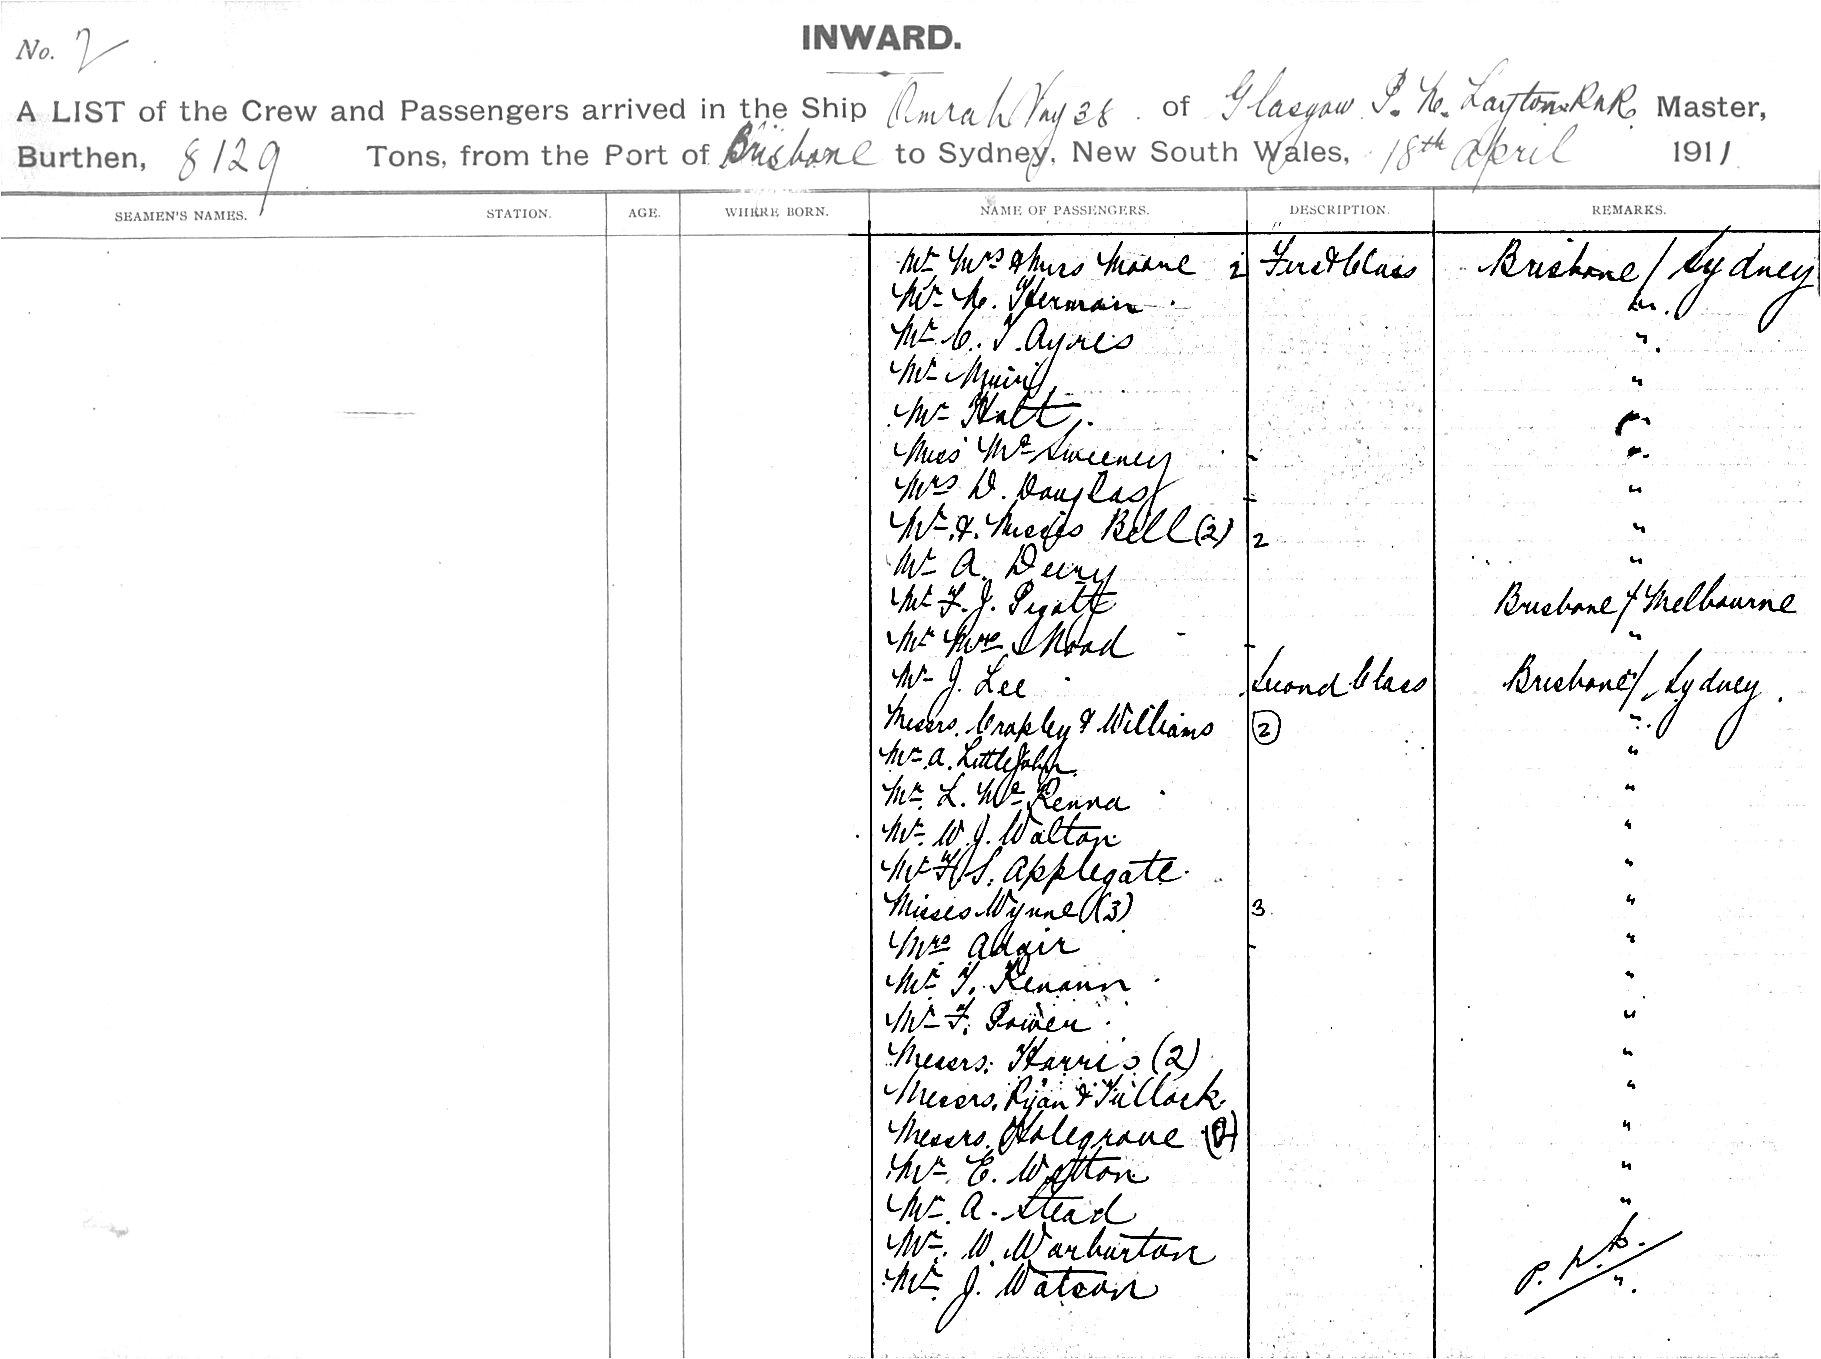 INWARD.
No. 2
A LIST of the Crew and Passengers arrived in the Ship Omrah Voy 38 of Glasgow P. N. Layton RNR Master,
Burthen, 8129 Tons, from the Port of Brisbane to Sydney, New South Wales, 18th April 1911
SEAMEN'S NAMES. STATION. AGE. WHERE BORN. NAME OF PASSENGERS. DESCRIPTION. REMARKS.
Mr Mrs & Miss Moore 2 First Class Brisbane / Sydney
Mr Herman "
Mr C. T. Ayres "
Mr Muir "
Mr Holt "
Miss Mc Sweeney "
Mrs D. Douglas "
Mr & Misses Bell (2) 2 "
Mr A. Deery "
Mr F. J. Pigott Brisbane / Melbourne
Mr Mrs Mood "
Mr J. Lee Second Class Brisbane / Sydney
Messrs. Cropley & Williams (2) "
Mr A. LittleJohn "
Mr. L. Mc Kenna "
Mr. W. J. Walton "
Mr H S. Applegate "
Misses Wynne (3) 3 "
Mrs Adair "
Mr T. "
Mr F. Power "
Messrs. Harris (2) "
Messrs. Ryan & Tullock "
Messrs. Holegrove (2) "
Mr. E. Watton "
Mr. A. Stead "
Mr. W. Warburton
Mr. J. Watson "